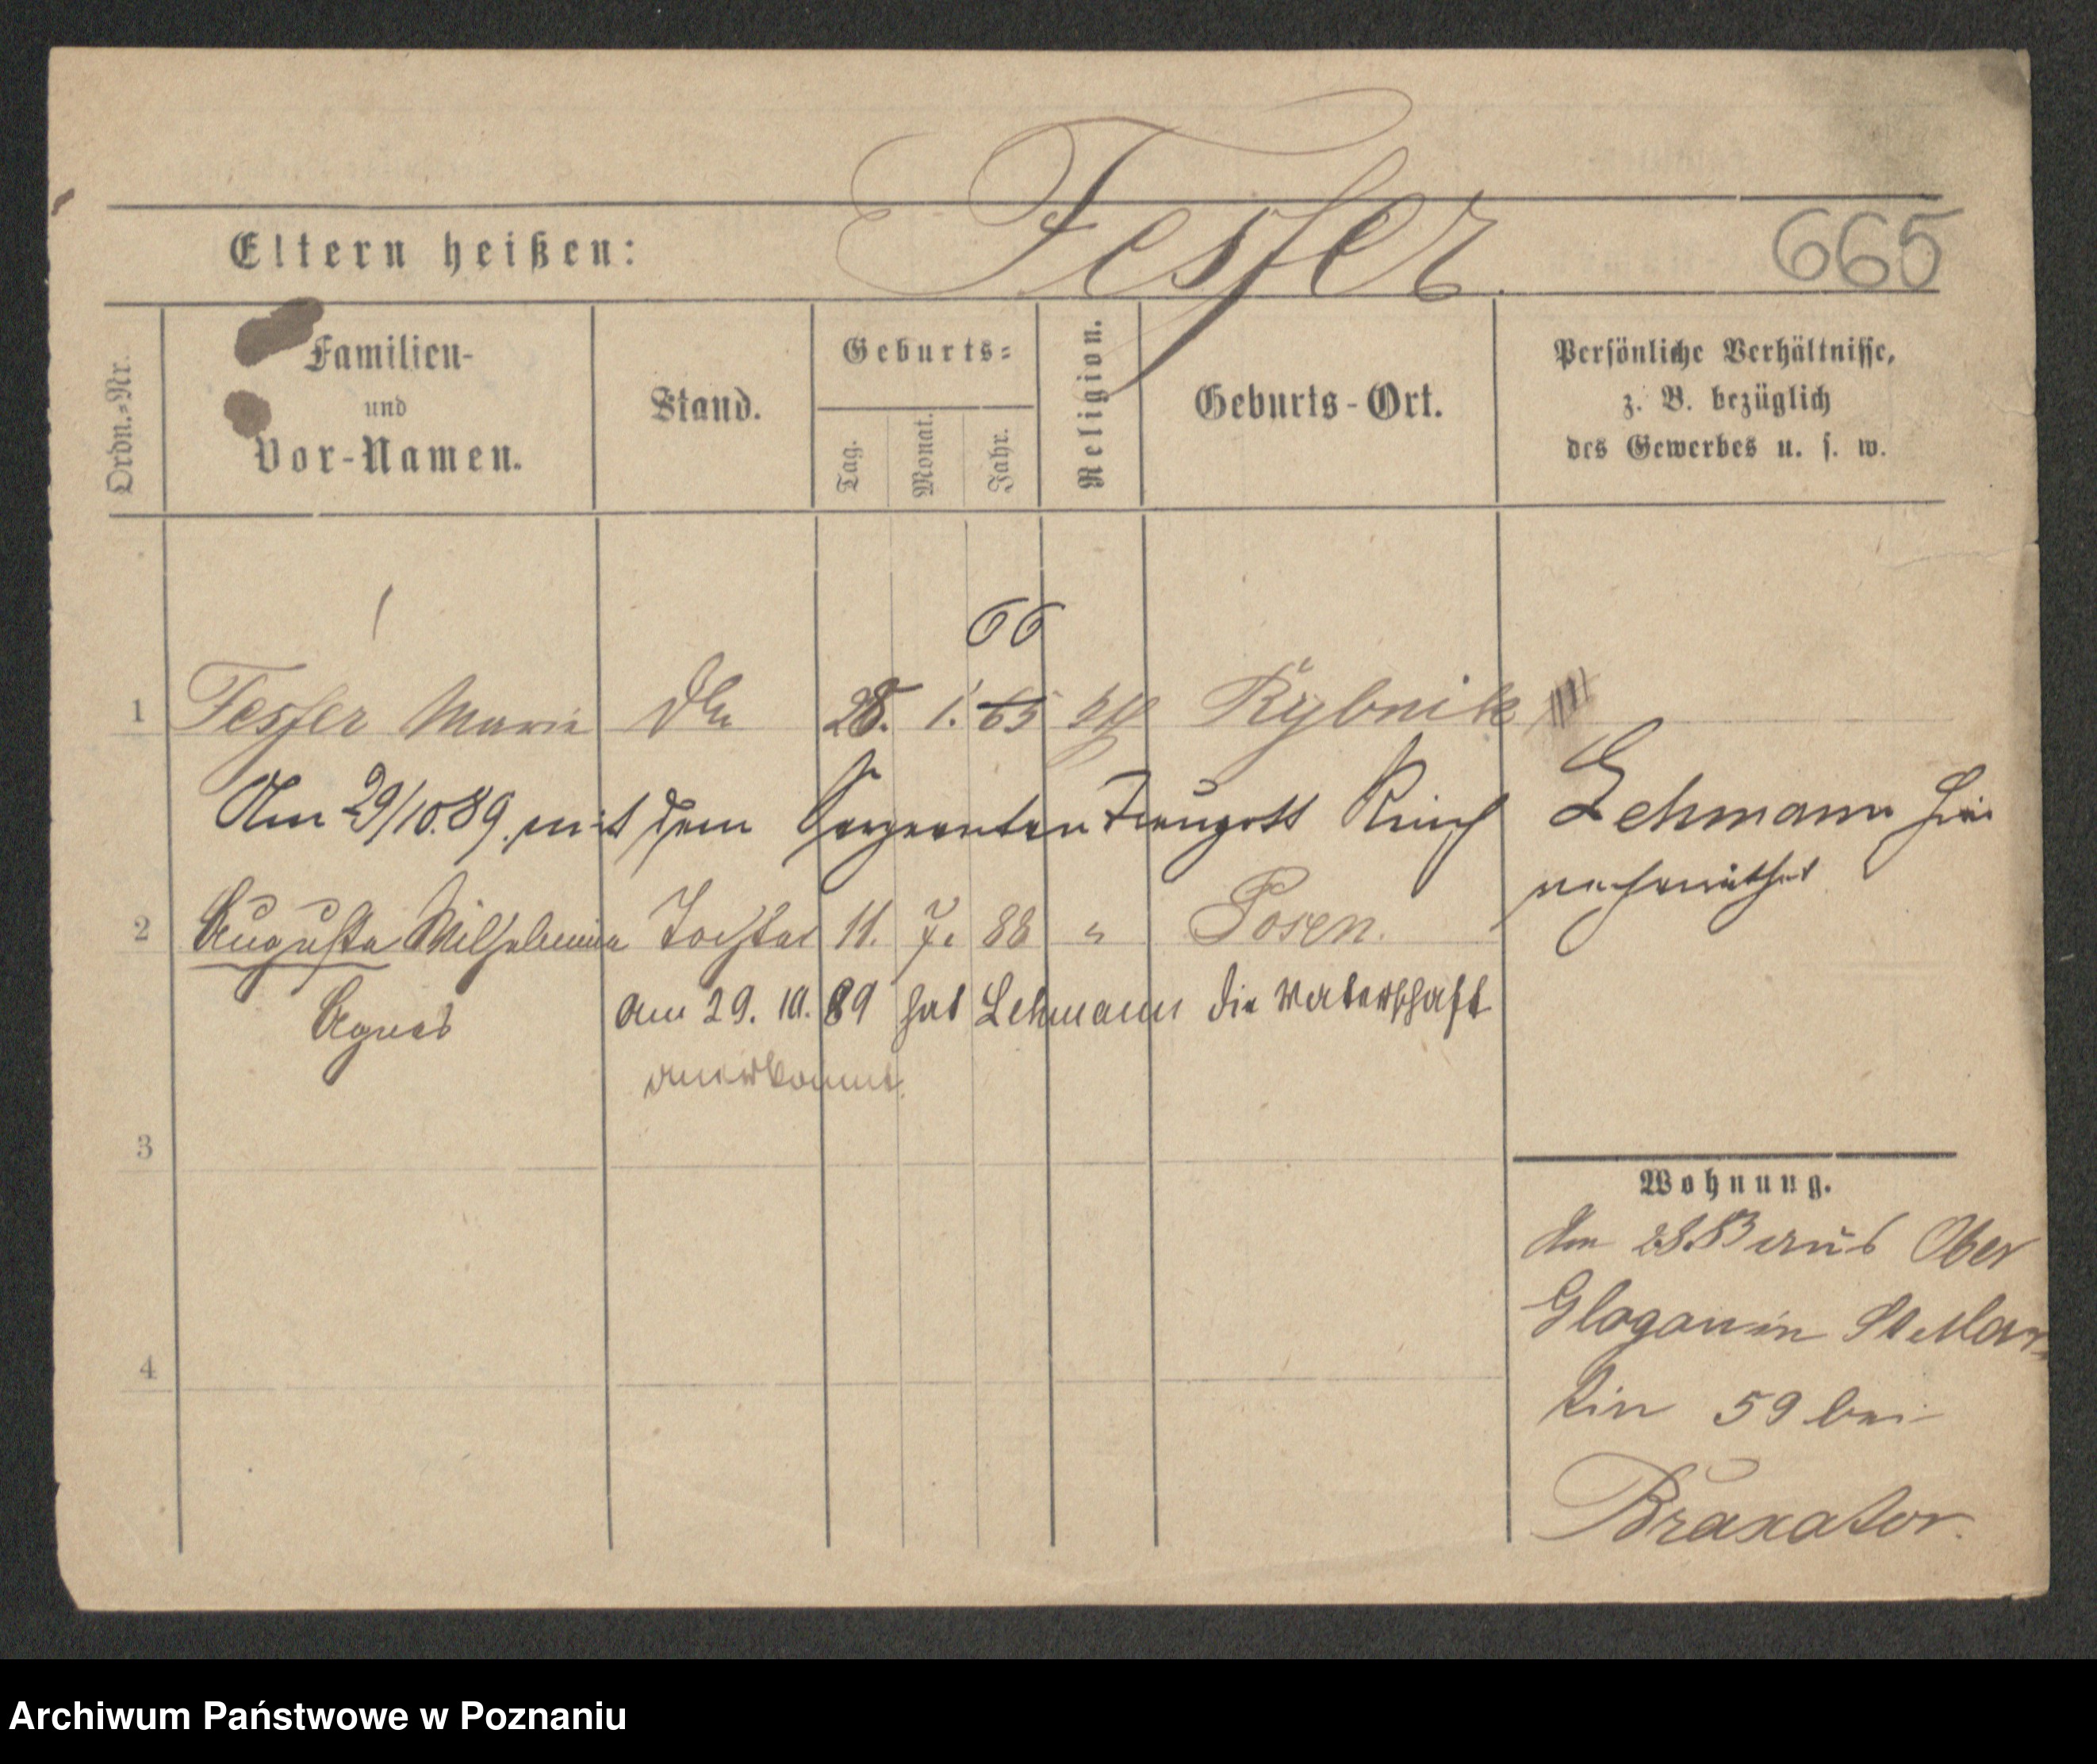 Fesser
Eltern heißen:
665
Ordn.=Nr.
Familien-
und
Vor-Namen.
Stand.
Geburts=
Tag.
Monat.
Jahr.
Religion.
Geburts-Ort.
Persönliche Verhältnisse,
z. B. bezüglich
des Gewerbes u. s. w.
66
1 Fesser Marie 28. 1. 65 Rybnik
Am 29/10.89. mit dem Sergeanten Traugott Lehmann hier
verheirathet
2 Auguste Wilhelmine Tochter 11. 7. 88 " Posen.
Agnes
am 29. 10. 89 hat Lehmann die Vaterschaft
anerkannt.
3
4
Wohnung.
aus Ober
Glogau in St Mar-
tin 59 bei
Braxator.
Archiwum Państwowe w Poznaniu